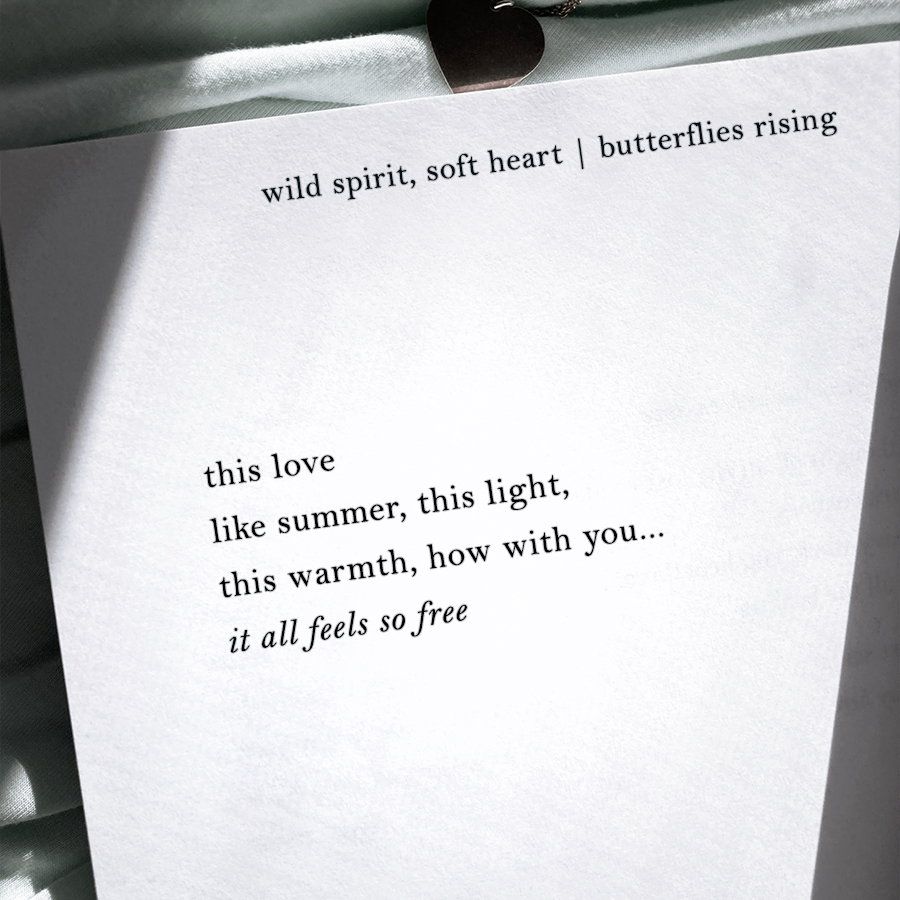 wild spirit, soft heart | butterflies rising
this love
like summer, this light,
this warmth, how with you...
it all feels so free